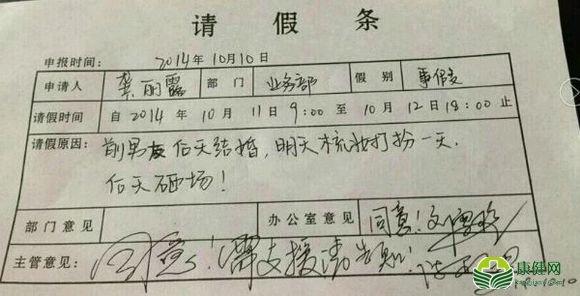 请假条
申报时间： 2014年10月10日
申请人 龚丽露 部门 业务部 假别 事假
请假时间 自2014年10月11日9:00至10月12日18:00止
请假原因： 前男友后天结婚，明天梳妆打扮一天，
后天砸场！
部门意见 办公室意见 同意！
主管意见： 同意！需支援请告知！
康健网